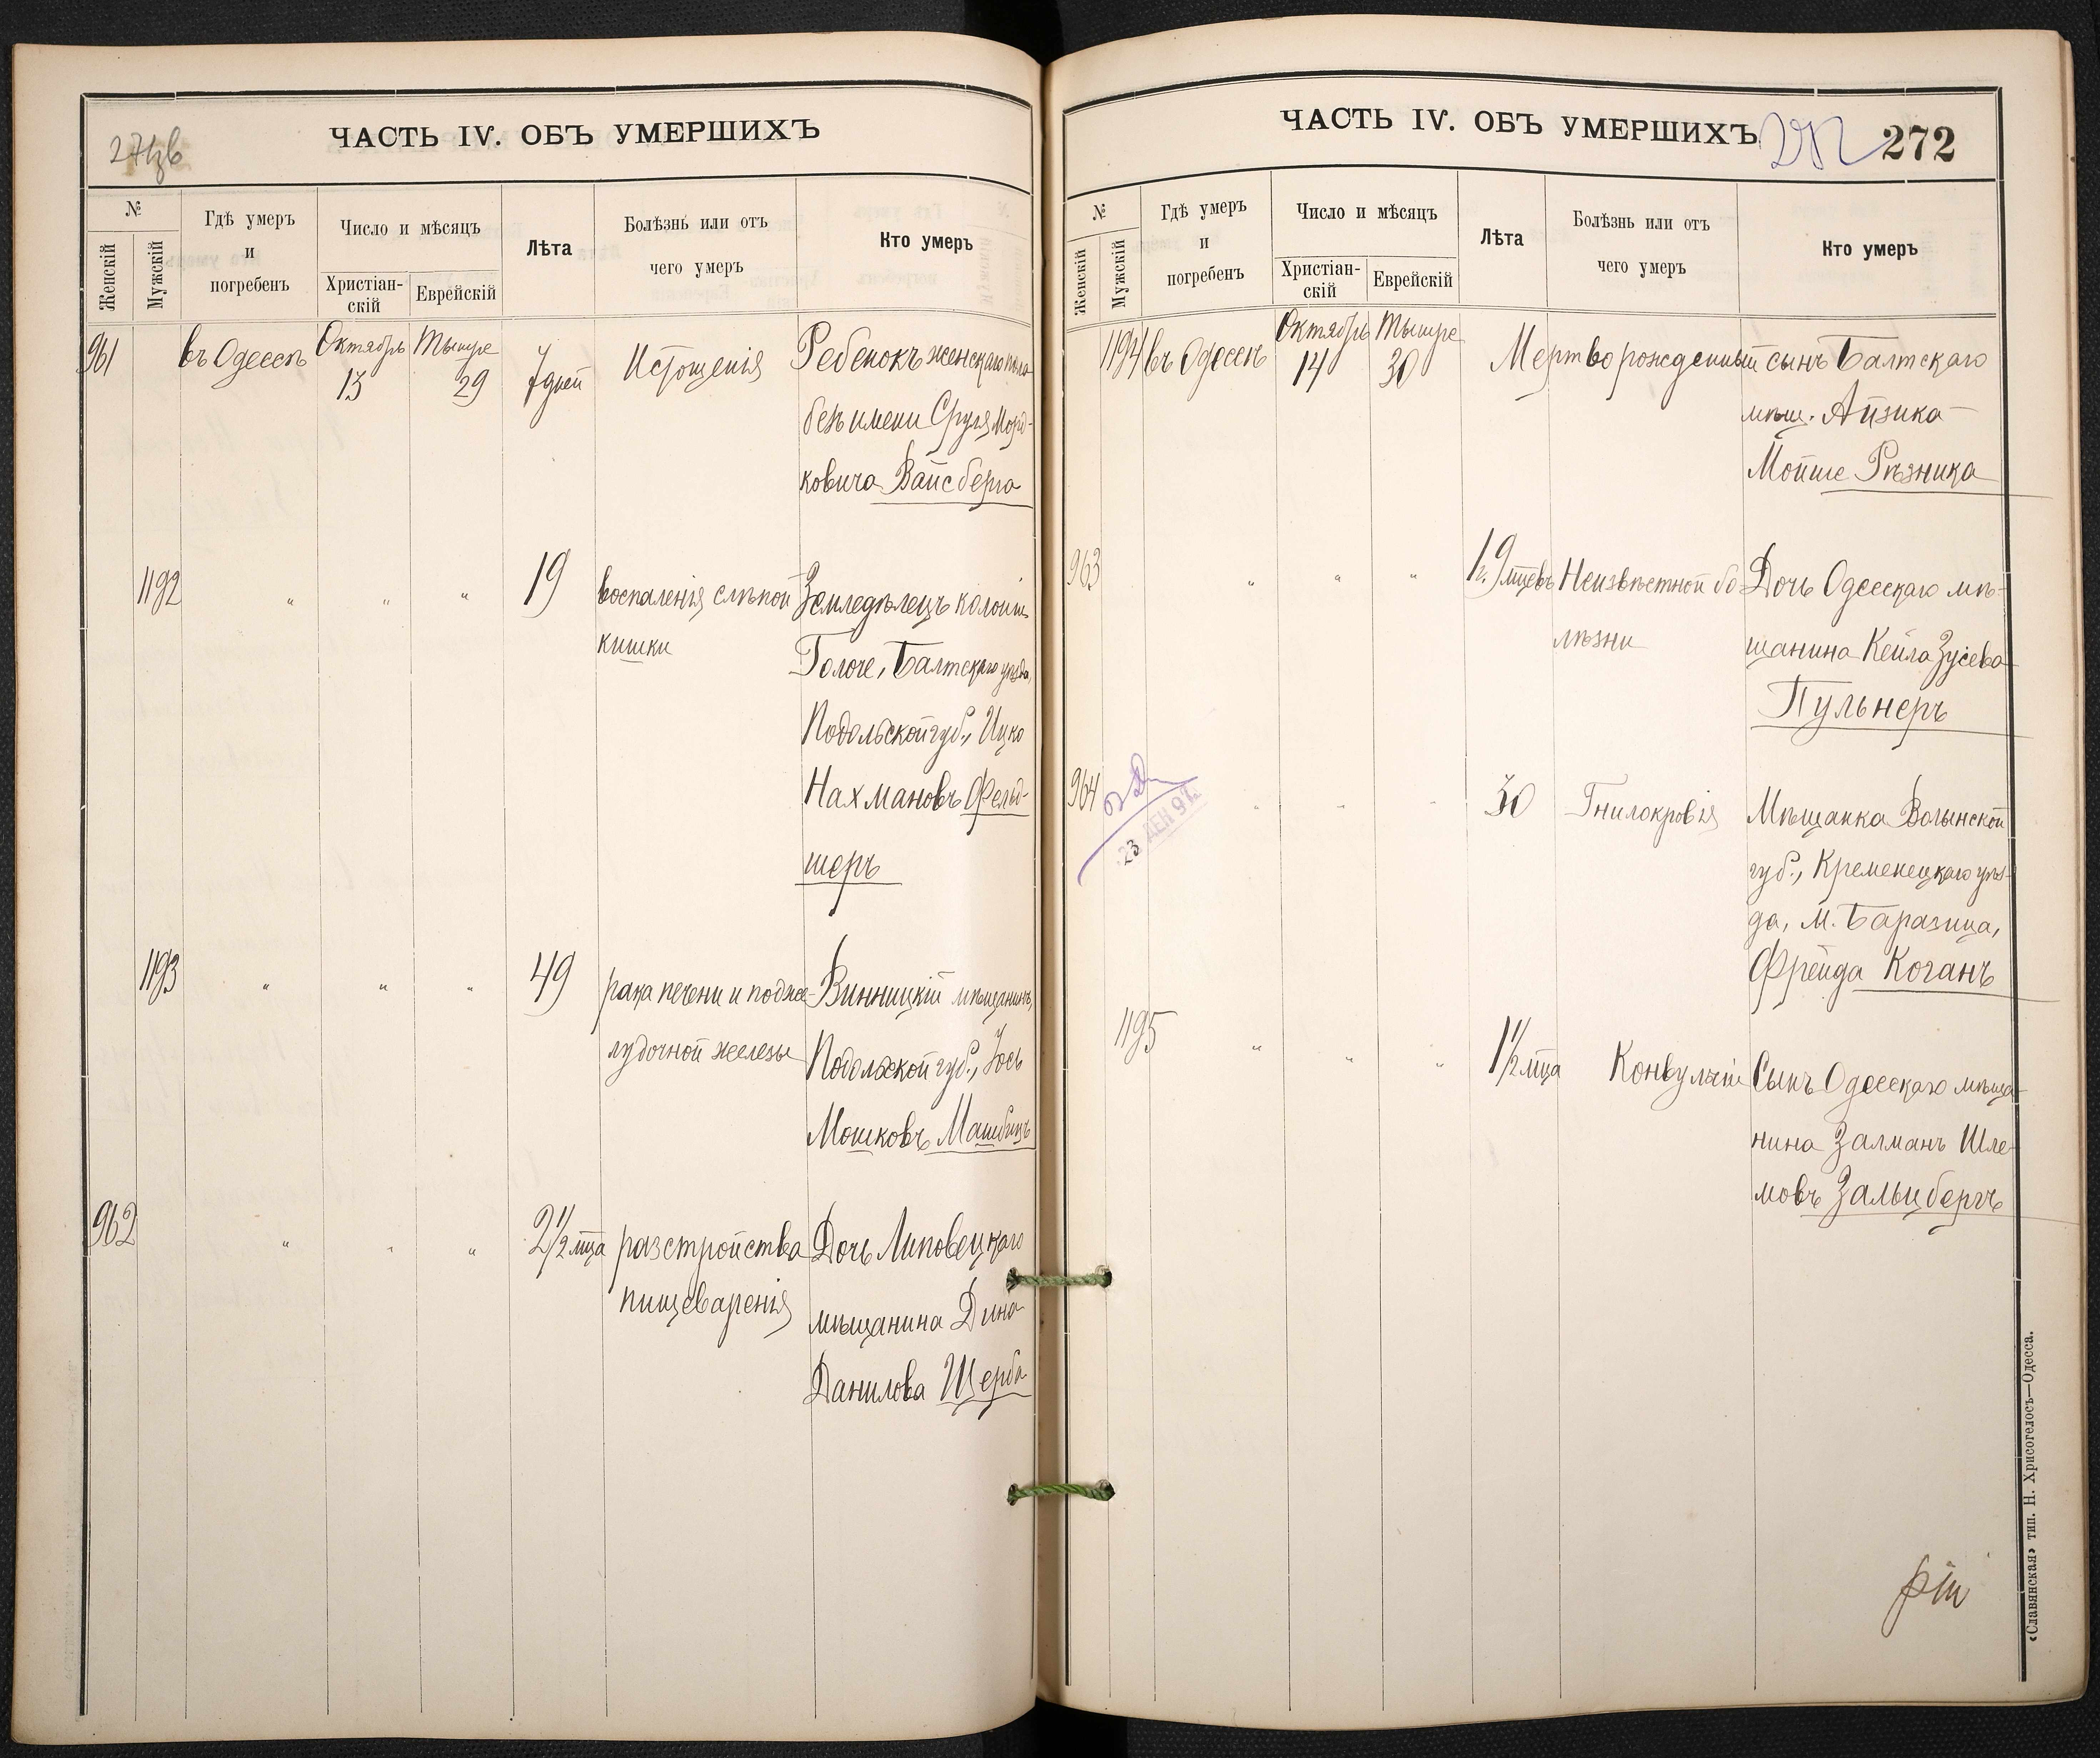 ЧАСТЬ IV. ОБЪ УМЕРШИХЪ
№
Женскій
Мужскій
Гдѣ умеръ
и
погребенъ
Число и мѣсяцъ
Христіан-
скій
Еврейскій
Лѣта
Болѣзнь или отъ
чего умеръ
Кто умеръ
961 въ Одессѣ Октябрь 13 Тышре 29 7 дней Истощенія Ребенокъ женскаго пола
безъ имени Сруля Морд-
ковича Вайсберга
1192 " " " 19 воспаленія слѣпой Земледѣлецъ колоніи
кишки
Голоче, Балтскаго уѣзда,
Подольской губ., Ицко
Нахмановъ Фельд-
шеръ
1193 " " " 49 рака печени и поджe- Винницкій мѣщанинъ,
лудочной железы Подольской губ., Іось
Мошковъ Машбицъ
962 " " " 2 1/2 мца разстройства Дочь Липовецкаго
пищеваренія мѣщанина Дина
Данилова Щерба
ЧАСТЬ IV. ОБЪ УМЕРШИХЪ 272
№
Женскій
Мужскій
Гдѣ умеръ
и
погребенъ
Число и мѣсяцъ
Христіан-
скій
Еврейскій
Лѣта
Болѣзнь или отъ
чего умеръ
Кто умеръ
1194 въ Одессѣ Октябрь 14 Тышре 30 Мертворожденный сынъ Балтскаго
мѣщ. Айзика
Мойше Рѣзника
963 " " " 1 г. 9 мцевъ Неизвѣстной бо- Дочь Одесскаго мѣ-
лѣзни щанина Кейла Зусева
Пульнеръ
964 " " " 30 Гнилокровія Мѣщанка Волынской
губ., Кременецкаго уѣз-
да, м. Баразица,
Фрейда Коганъ
23 ДЕК 97.
1195 " " " 1 1/2 мца Конвульсіи Сынъ Одесскаго мѣща-
нина Залманъ Шле-
мовъ Зальцбергъ
«Славянская» тип. Н. Хрисогелосъ—Одесса.